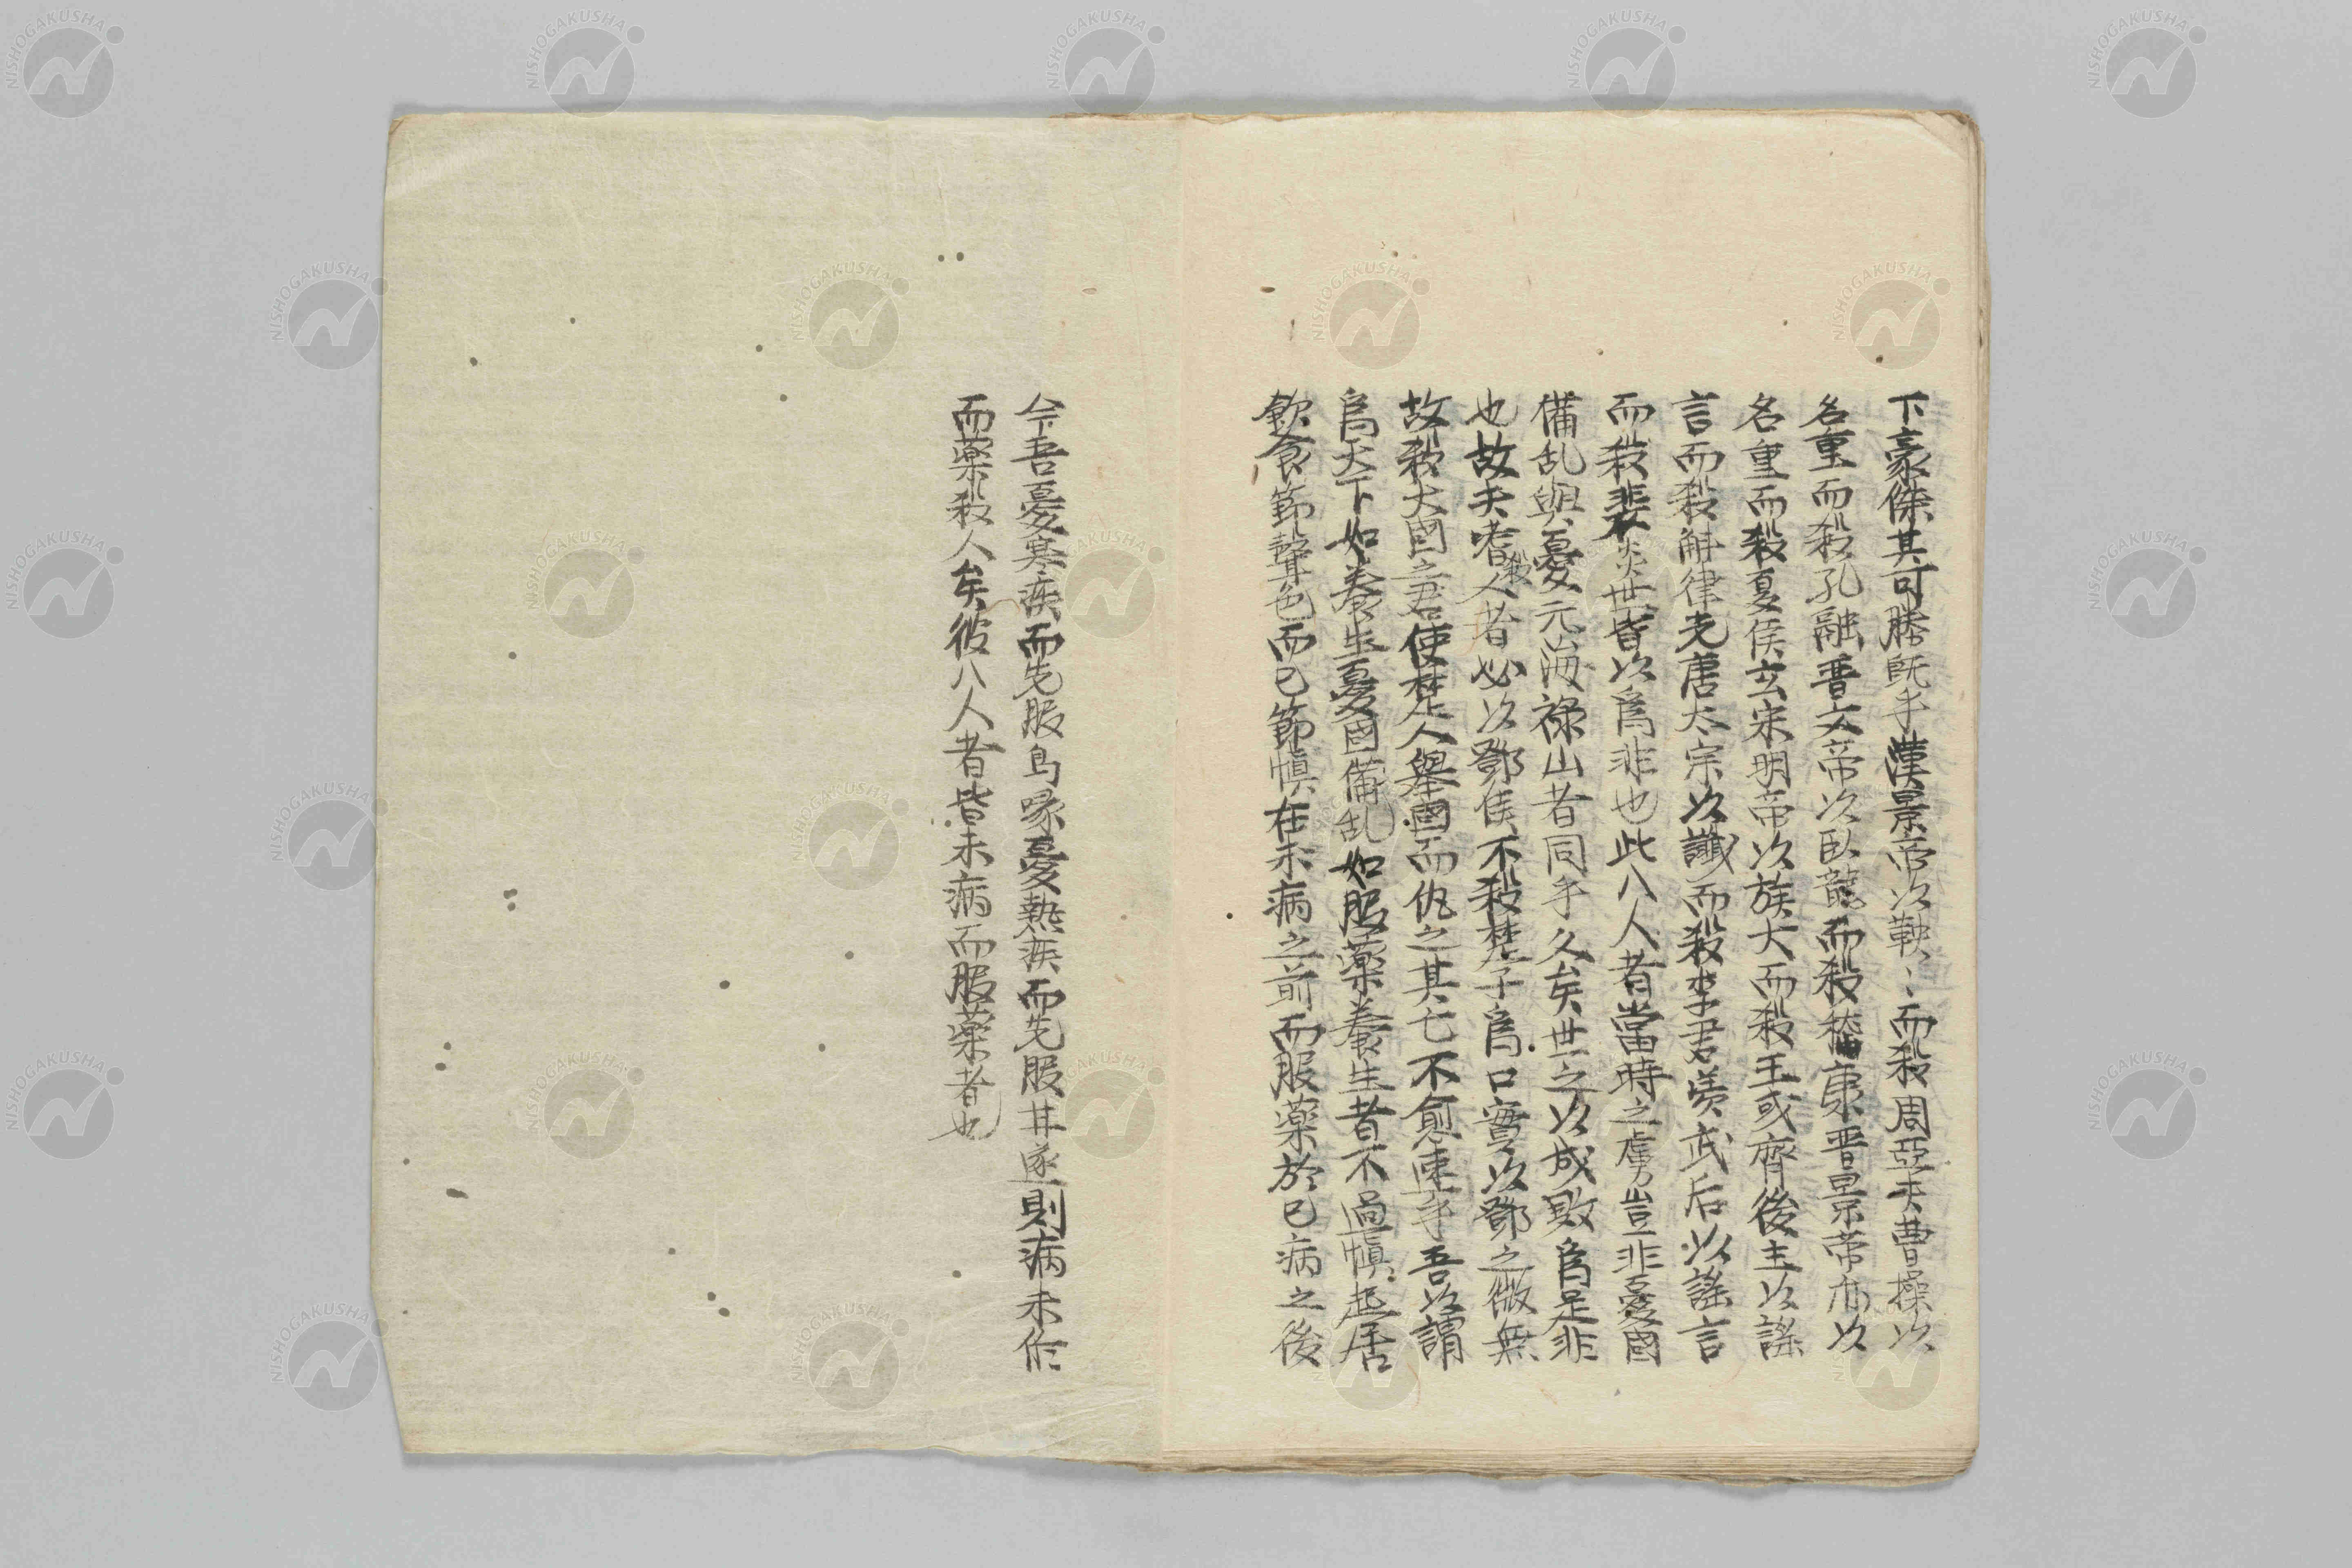 下豪傑其可勝既乎漢景帝以鞅〻而殺周亞夫曹操以
名重而殺孔融晋文帝以臥龍而殺嵇康晋景帝亦以
名重而殺夏侯玄宋明帝以族大而殺王彧齊後主以謠
言而殺斛律光唐太宗以讖而殺李君羨武后以謠言
而殺裴炎世皆以爲非也此八人者當時之慮豈非憂國
備乱與憂元海禄山者同乎久矣世之以成敗爲是非
也故夫嗜殺人者必以鄧侯不殺楚子爲口實以鄧之微無
故殺大國之君使楚人舉國而仇之其亡不愈速乎吾以謂
爲天下如養生憂國備乱如服薬養生者不過慎起居
飲食節聲色而已節慎在未病之前而服薬於已病之後
今吾憂寒疾而先服烏喙憂熱疾而先服甘遂則病未作
而薬殺人矣彼八人者皆未病而服薬者也
NISHOGAKUSHA